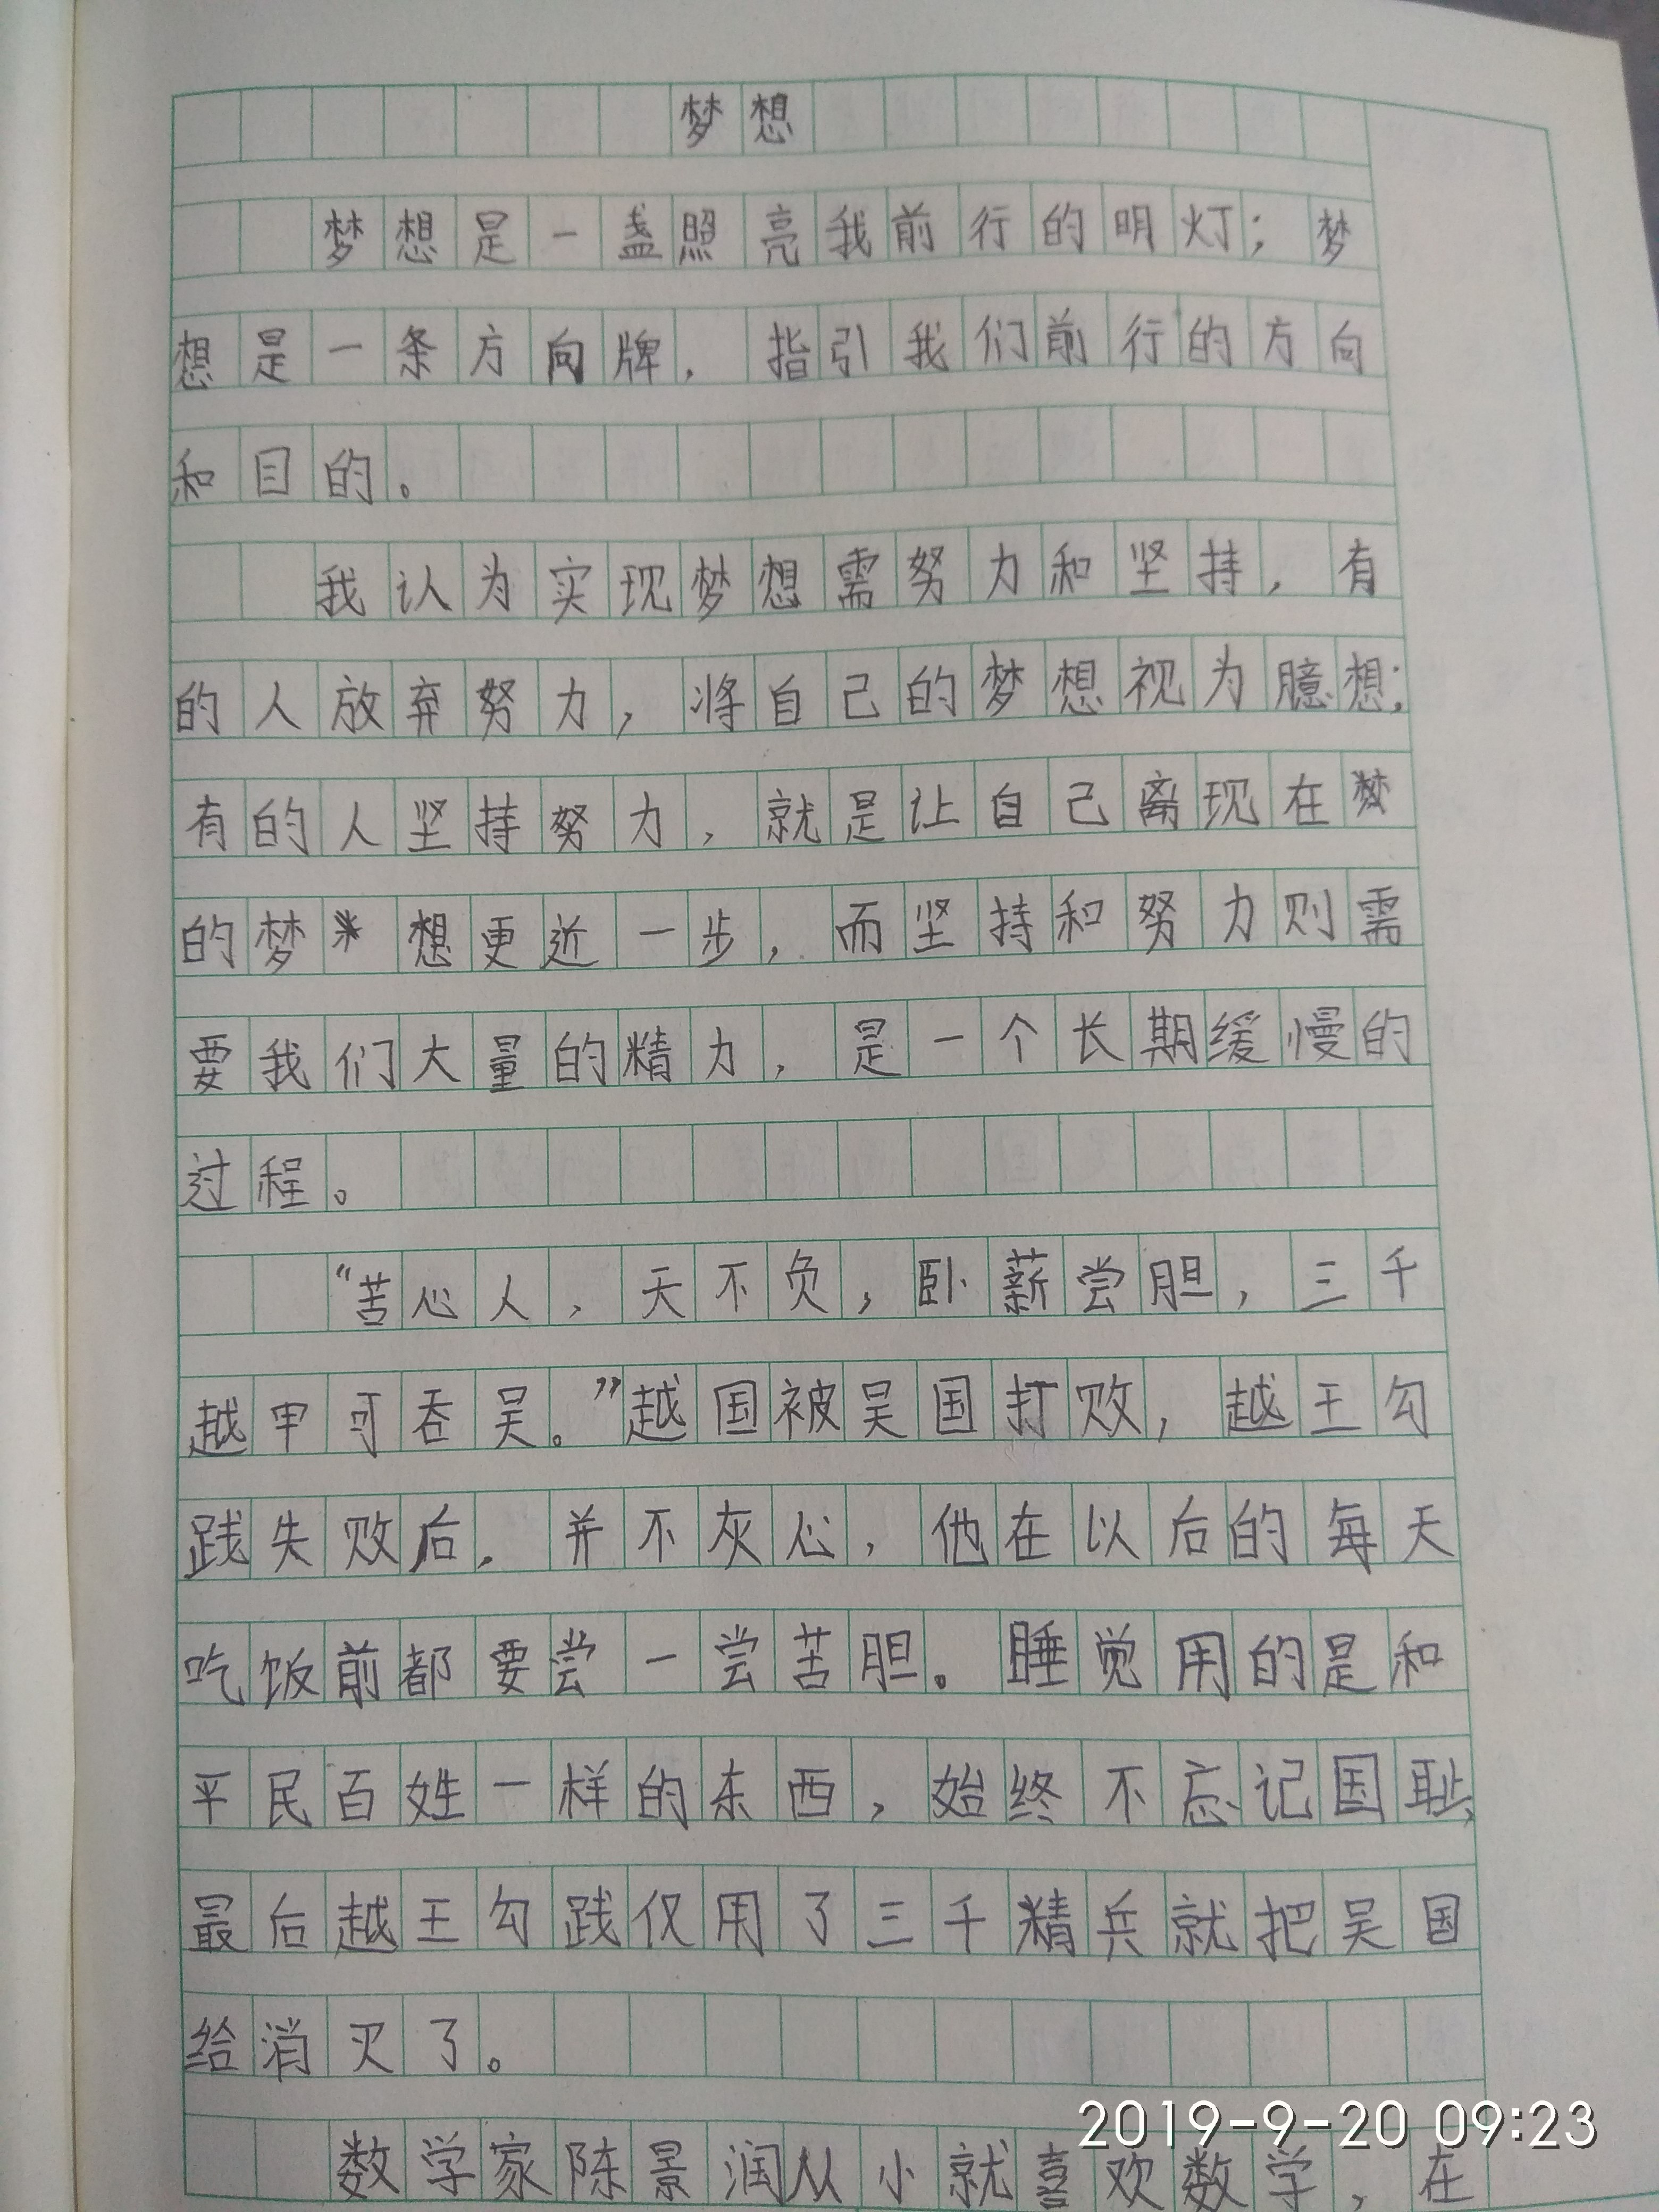 梦想
梦想是一盏照亮我前行的明灯；梦
想是一条方向牌，指引我们前行的方向
和目的。
我认为实现梦想需努力和坚持，有
的人放弃努力，将自己的梦想视为臆想；
有的人坚持努力，就是让自己离现在
的梦想更近一步，而坚持和努力则需
要我们大量的精力，是一个长期缓慢的
过程。
“苦心人，天不负，卧薪尝胆，三千
越甲可吞吴。”越国被吴国打败，越王勾
践失败后，并不灰心，他在以后的每天
吃饭前都要尝一尝苦胆。睡觉用的是和
平民百姓一样的东西，始终不忘记国耻，
最后越王勾践仅用了三千精兵就把吴国
给消灭了。
2019-9-20 09:23
数学家陈景润从小就喜欢数学，在